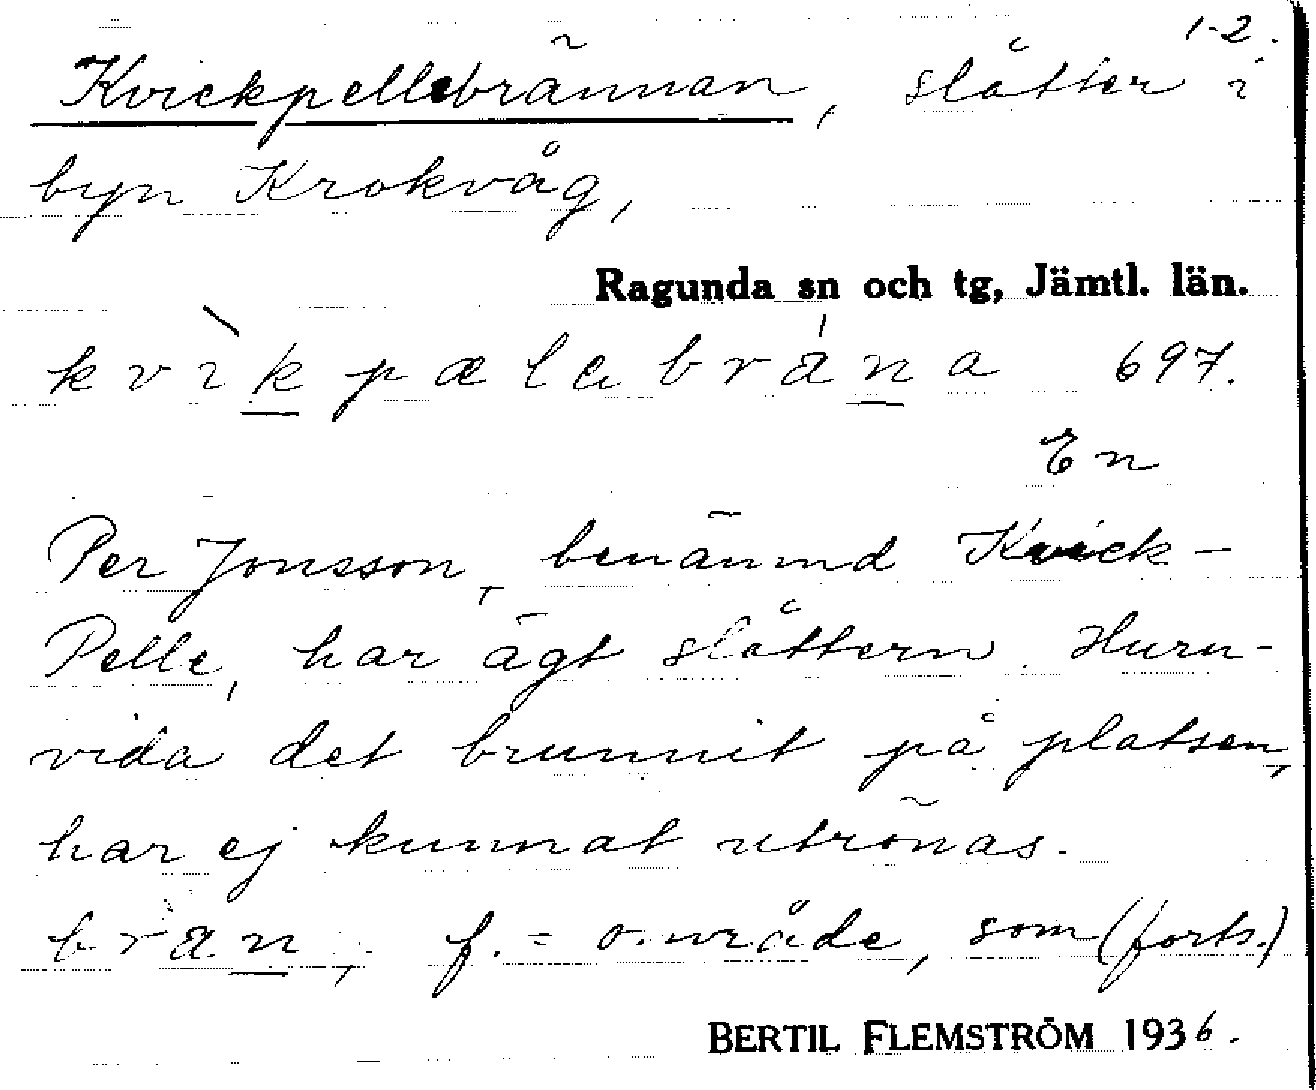 1-2.
Kvickpellebrännan, slåtter i
byn Krokvåg,
Ragunda sn och tg, Jämtl. län.
kvìkpælabrána 697.
En
Per Jonsson, benämnd Kvick-
Pelle, har ägt slåttern. Huru-
vida det brunnit på platsen,
har ej kunnat utrönas.
bran, f. = område, som (forts.)
BERTIL FLEMSTRÖM 1936.